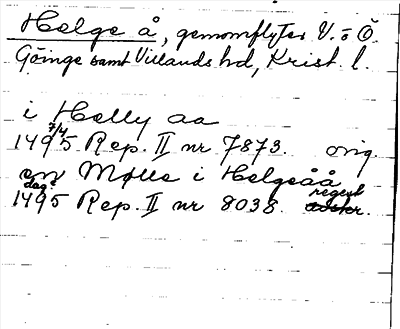 Helge å, genomflyter V. o Ö.
Göinge samt Villands hd, Krist. l.
i Helly aa
7/4
1495 Rep. II nr 7873. orig.
en Mølle i Helgeåå
dag? regest
1495 Rep. II nr 8038.